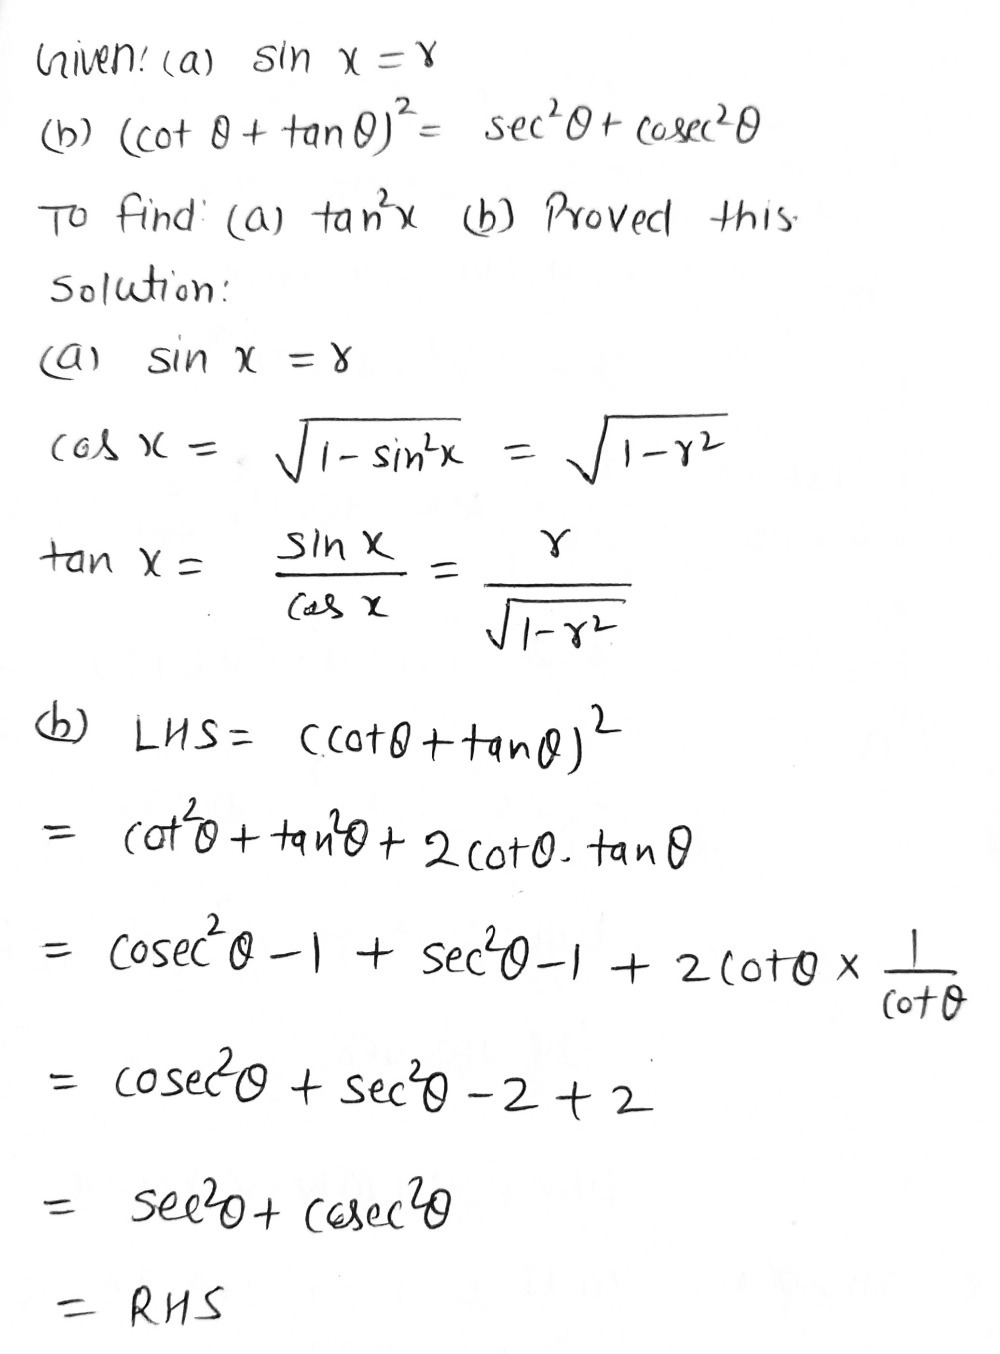 Given: (a) sin x = r
(b) (cot θ + tan θ)² = sec²θ + cosec²θ
To find: (a) tan²x (b) Proved this.
Solution:
(a) sin x = r
cos x = √(1 - sin²x) = √(1 - r²)
tan x = sin x / cos x = r / √(1 - r²)
(b) LHS = (cotθ + tanθ)²
= cot²θ + tan²θ + 2 cotθ. tan θ
= cosec²θ - 1 + sec²θ - 1 + 2 cotθ × 1 / cotθ
= cosec²θ + sec²θ - 2 + 2
= sec²θ + cosec²θ
= RHS